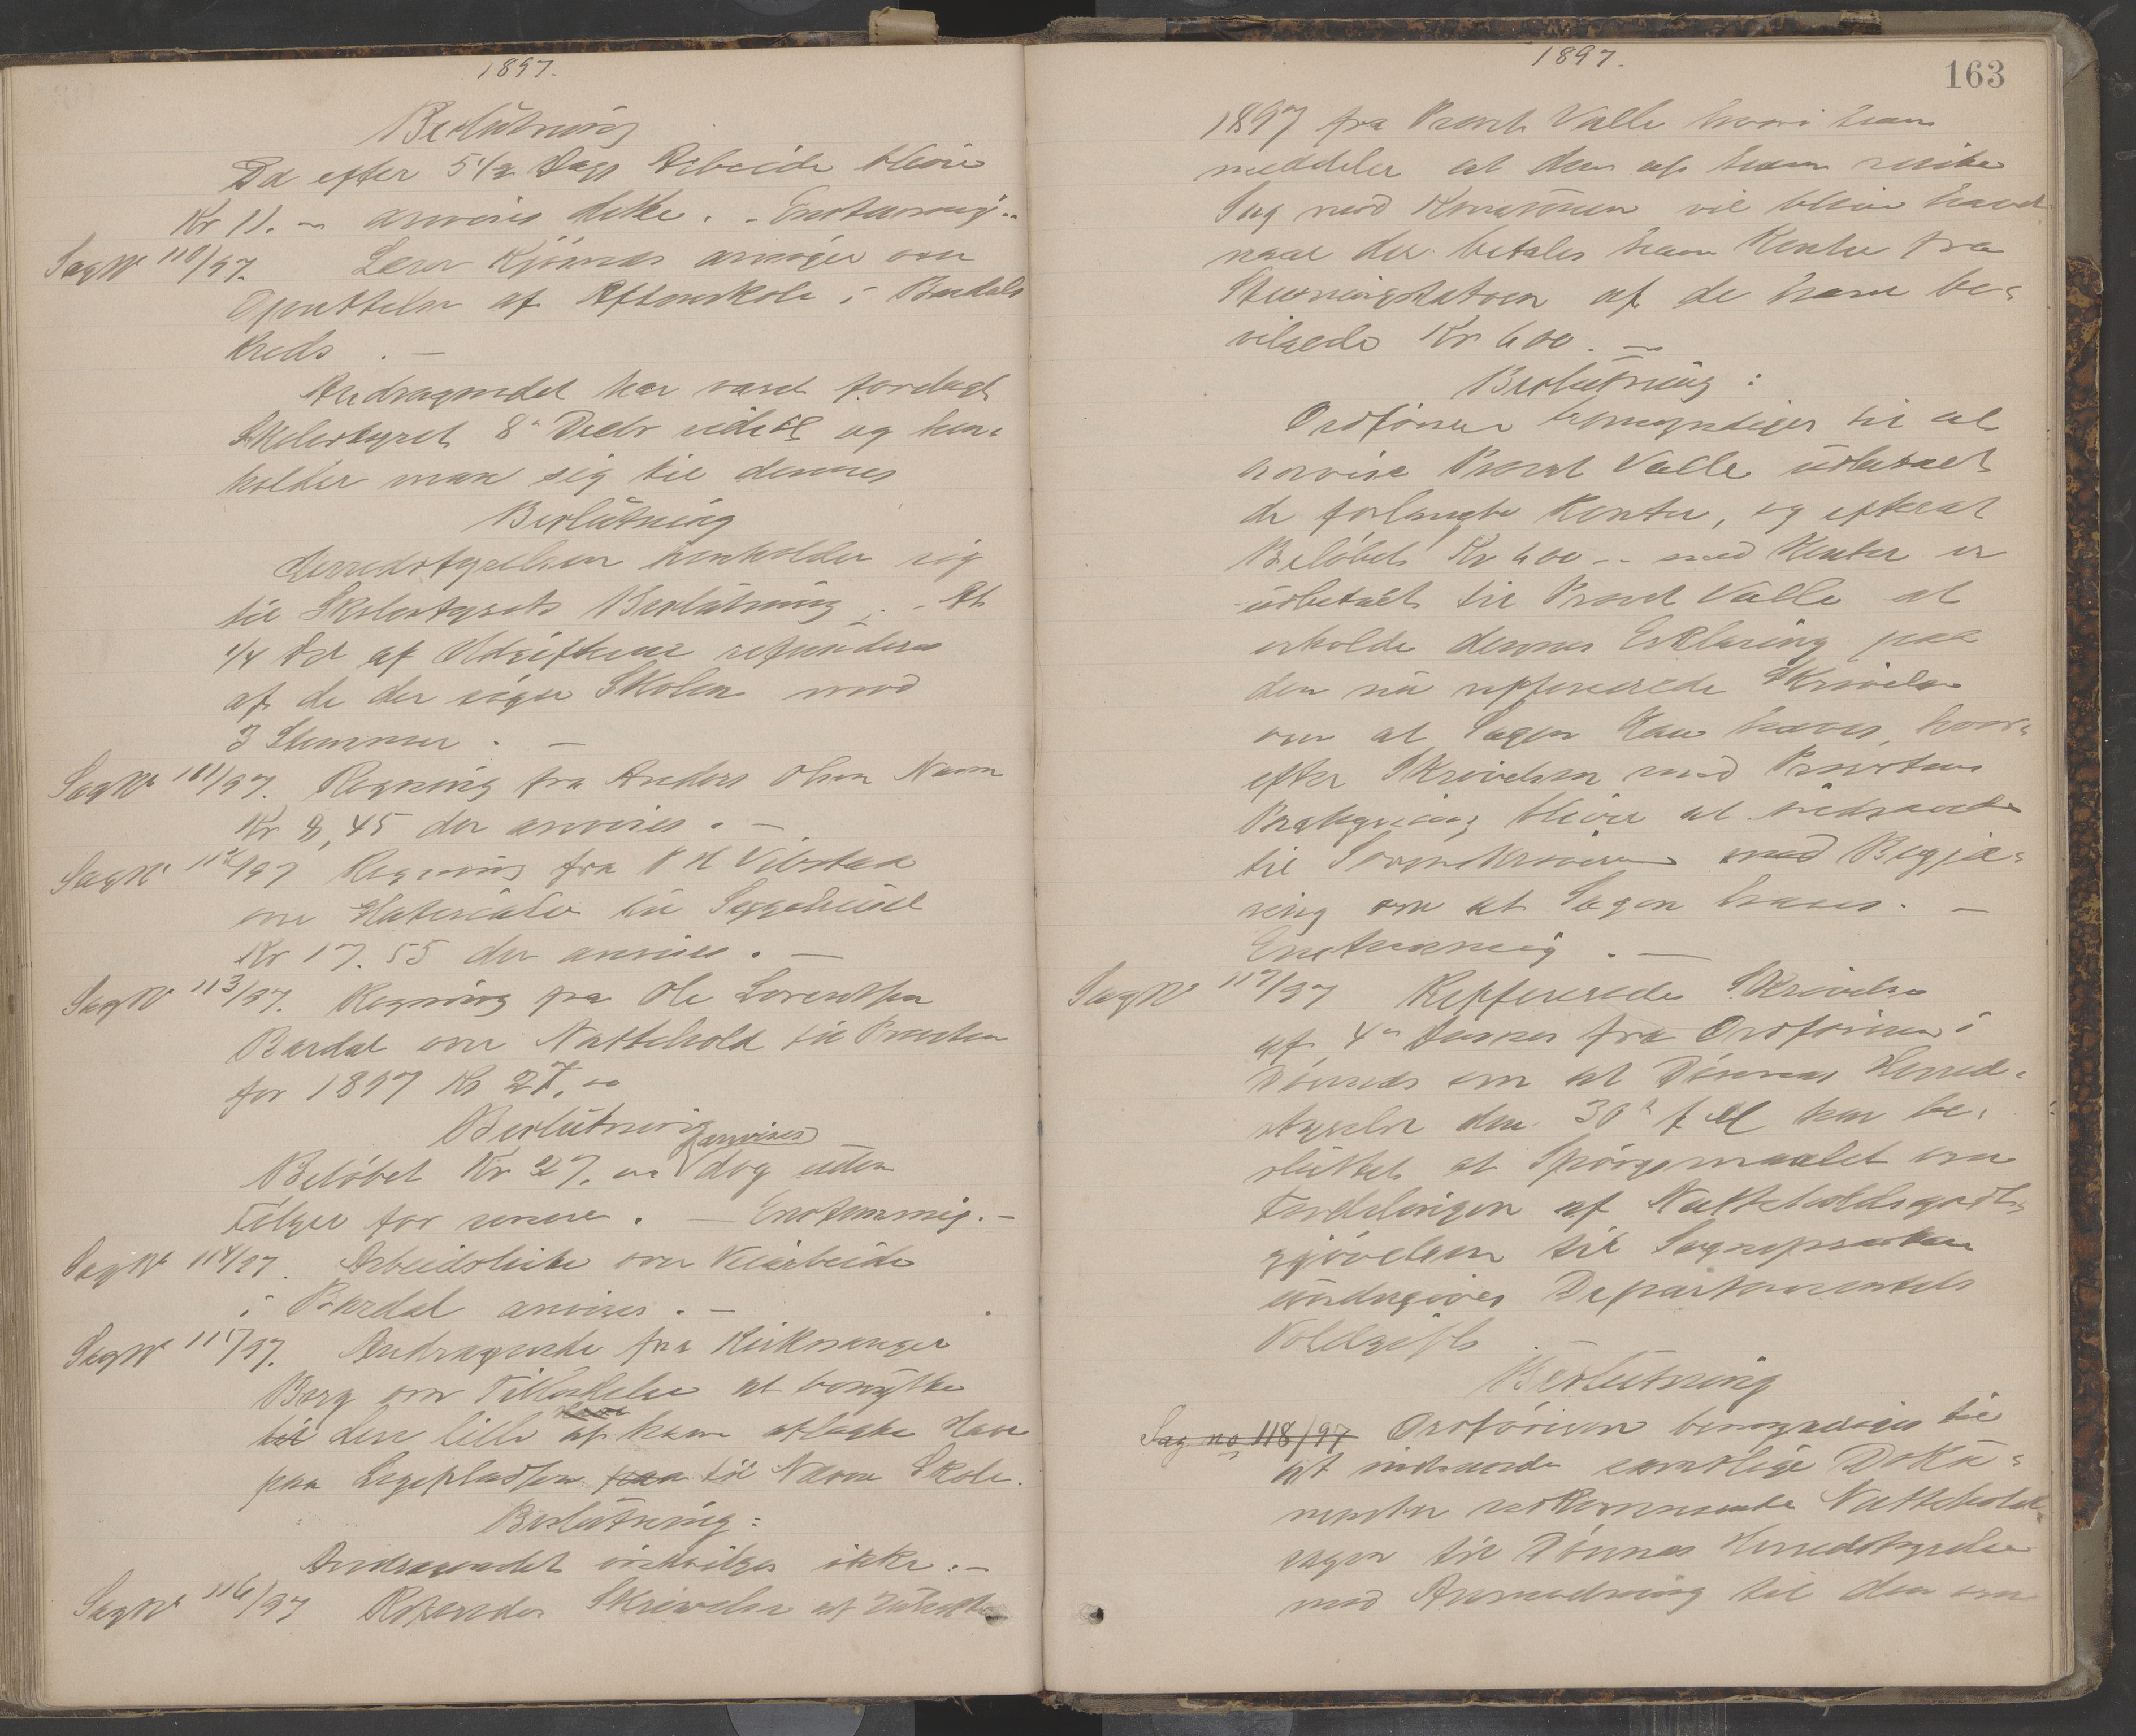 1897.
Beslutning
Da efter 5 1/2 Dags Arbeide blive
Kr 11. - anvises dette. - Enstemmig. -
Sag Nr 110/97. Lærer Kjönnås ansöger om
Oprettelse af Aftenskole i Bardals
Kreds. -
Andragendet har været forelagt
Skolestyret 8de Decbr sidstl og hen-
holder man sig til dennes
Beslutning
Herredstyrelsen henholder sig
til Skolestyrets Beslutning. - At
1/4 Del af Udgifterne refunderes
af de der söger Skolen mod
3 Stemmer. -
Sag Nr 111/97. Regning fra Anders Olsen Næsn
Kr 8,45 der anvises. -
Sag Nr 112/97 Regning fra Vibstad
om Materialer til Sygehuset
Kr 17.55 der anvises. -
Sag Nr 113/97. Regning fra Ole Lorentsen
Bardal om Nattehold til Præsten
for 1897 Kr 27, -
Beslutning
anvises
Belöbet Kr 27. - dog uden
Fölger for senere. - Enstemmig. -
Sag Nr 114/97. Arbeidsliste over Veiarbeide
i Bardal anvises. -
Sag Nr 115/97. Andragende fra Kirkesanger
Borg om Tilladelse at benytte
til den lille af ham anlagte Have
paa Legepladsen paa til Næsna Skole.
Beslutning:
Andragendet indvilges ikke. -
Sag Nr 116/97 Refereredes Skrivelse af
1897.
163
1897 fra Provst Valle hvori han
meddeler at den af ham reiste
Sag mod Kommunen vil blive hævet
naar der betales ham Renter fra
Stevningsdatoen af de ham be-
vilgede Kr 600. -
Beslutning:
Ordföreren bemyndiges til at
anvise Provst Valle udbetalt
de forlangte Renter, og efterat
Belöbet Kr 600 - med Renter er
udbetalt til Provst Valle at
erholde dennes Erklæring paa
den nu reffererede Skrivelse
om at Sagen kan hæves, hvor-
efter Skrivelsen med Provstens
Paategning bliver at indsende
til Sorenskriveren med Begjæ-
ring om at Sagen hæves. -
Enstemmig. -
Sag Nr 117/97 Reffereredes Skrivelse
af 4de dennes fra Ordföreren i
Dönnes om at Dönnes Herred-
styrelse den 30te f M har be-
sluttet at Spörgsmaalet om
Fordelingen af Natteholdsgodt-
gjörelsen til Sognepresten
undergives Departementets
Voldgift. -
Beslutning
Sag no 118/97 Ordföreren bemyndiges til
at indsende samtlige Doku-
menter vedkommende Natteholds-
sagen til Dönnes Herredstyrelse
med Anmodning til den om